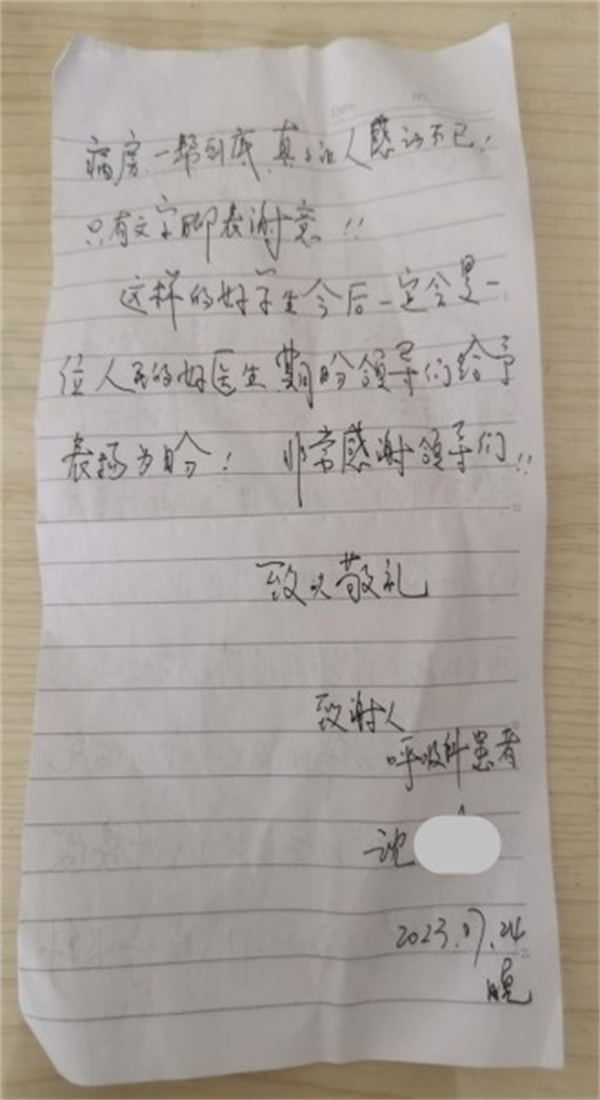 病房,一帮到底,真让人感动不已!
只有文字聊表谢意!!
这样的好学生今后一定会是一
位人民的好医生,期盼领导们给予
表扬为盼! 非常感谢领导们!!
致以敬礼
致谢人
呼吸科患者
沈
2023.07.24
晚